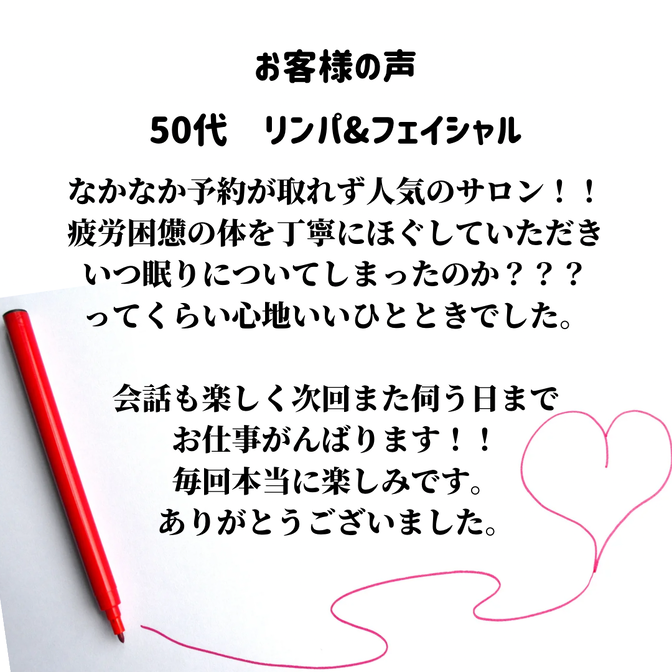 お客様の声
50代　リンパ&フェイシャル
なかなか予約が取れず人気のサロン！！
疲労困憊の体を丁寧にほぐしていただき
いつ眠りについてしまったのか？？？
ってくらい心地いいひとときでした。
会話も楽しく次回また伺う日まで
お仕事がんばります！！
毎回本当に楽しみです。
ありがとうございました。